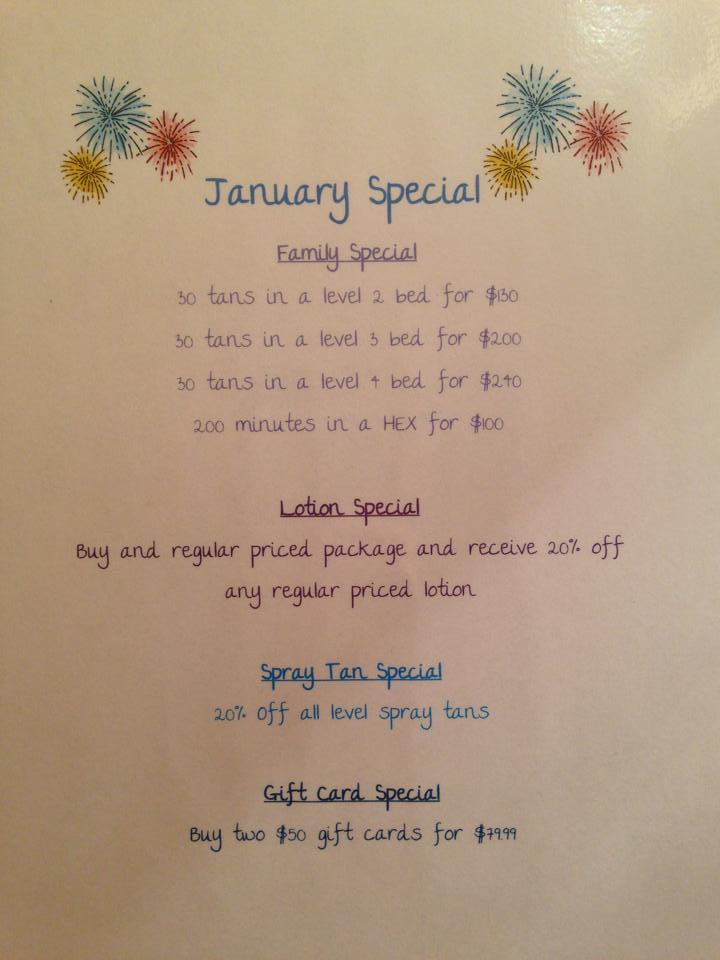 January Special
Family Special
30 tans in a level 2 bed for $130
30 tans in a level 3 bed for $200
30 tans in a level 4 bed for $240
200 minutes in a HEX for $100
Lotion Special
Buy and regular priced package and receive 20% off
any regular priced lotion
Spray Tan Special
20% off all level spray tans
Gift Card Special
Buy two $50 gift cards for $79.99